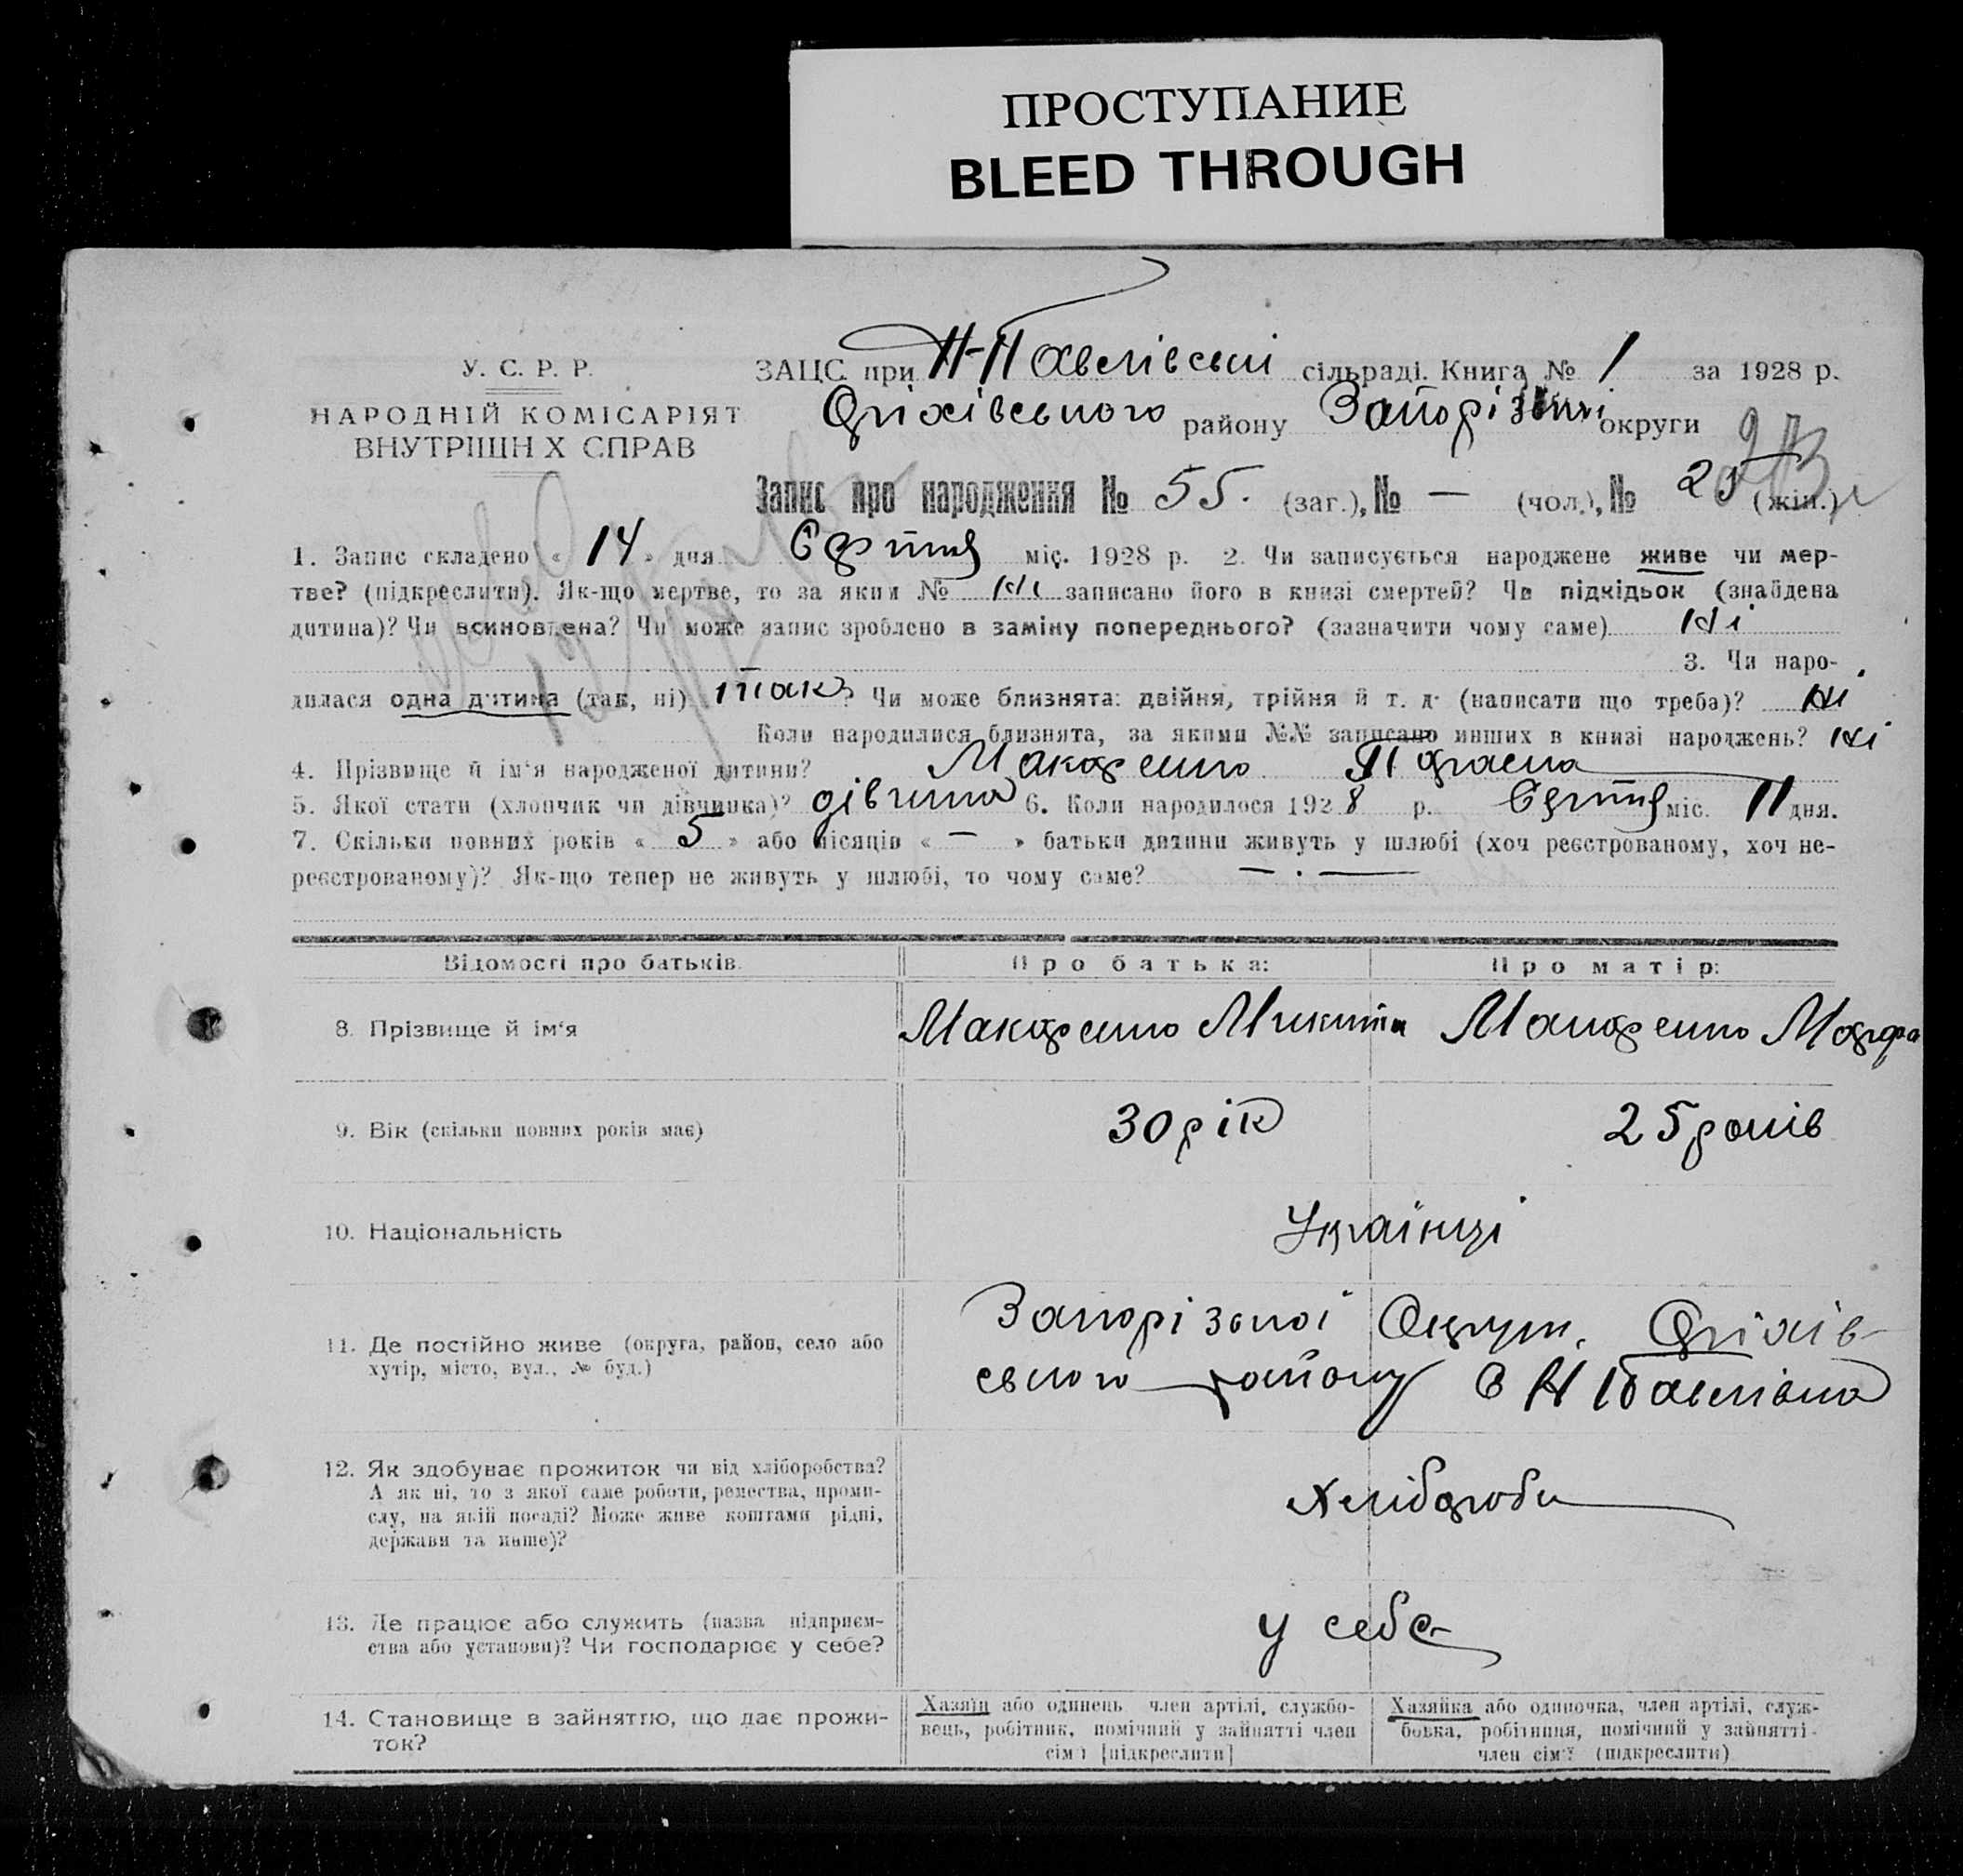 ПРОСТУПАНИЕ
BLEED THROUGH
У. С. Р. Р.
НАРОДНІЙ КОМІСАРІЯТ
ВНУТРІШН Х СПРАВ
ЗАЦС при Н-Павлівські сільраді. Книга № 1 за 1928 р.
Оріхівського району округи
Запис про народження № 55. (заг.), № — (чол.), № (жін.)
1. Запис складено « 14 » дня міс. 1928 р. 2. Чи записується народжене живе чи мер-
тве? (підкреслити). Як-що мертве, то за яким № ні записано його в книзі смертей? Чи підкідьок (знайдена
дитина)? Чи всиновлена? Чи може запис зроблено в заміну попереднього? (зазначити чому саме) Ні
3. Чи наро-
дилася одна дитина (так, ні) так? Чи може близнята: двійня, трійня й т. д. (написати що треба)? Ні
Коли народилися близнята, за якими №№ записано инших в книзі народжень? Ні
4. Прізвище й ім'я народженої дитини? Макаренко
5. Якої стати (хлопчик чи дівчинка)? дівчина 6. Коли народилося 1928 р. міс. 11 дня.
7. Скільки повних років « 5 » або місяців « — » батьки дитини живуть у шлюбі (хоч реєстрованому, хоч не-
реєстрованому)? Як-що тепер не живуть у шлюбі, то чому саме? — . —
Відомості про батьків. Про батька: Про матір:
8. Прізвище й ім'я Макаренко Микита Макаренко Марфа
9. Вік (скільки повних років має) 30 рік 25 років
10. Національність Українці
11. Де постійно живе (округа, район, село або
хутір, місто, вул., № буд.)
Запорізької Округи, Оріхів-
ського району с Н Павлівка
12. Як здобуває прожиток чи від хліборобства?
А як ні, то з якої саме роботи, ремества, проми-
слу, на якій посаді? Може живе коштами рідні,
держави та инше)?
Хлібороби
13. Де працює або служить (назва підприєм-
ства або установи)? Чи господарює у себе?
у себе
14. Становище в зайняттю, що дає прожи-
ток?
Хазяїн або одинець член артілі, службо-
вець, робітник, помічний у зайнятті член
сім'ї [підкреслити]
Хазяйка або одиночка, член артілі, служ-
бовка, робітниця, помічний у зайнятті
член сім'ї (підкреслити)